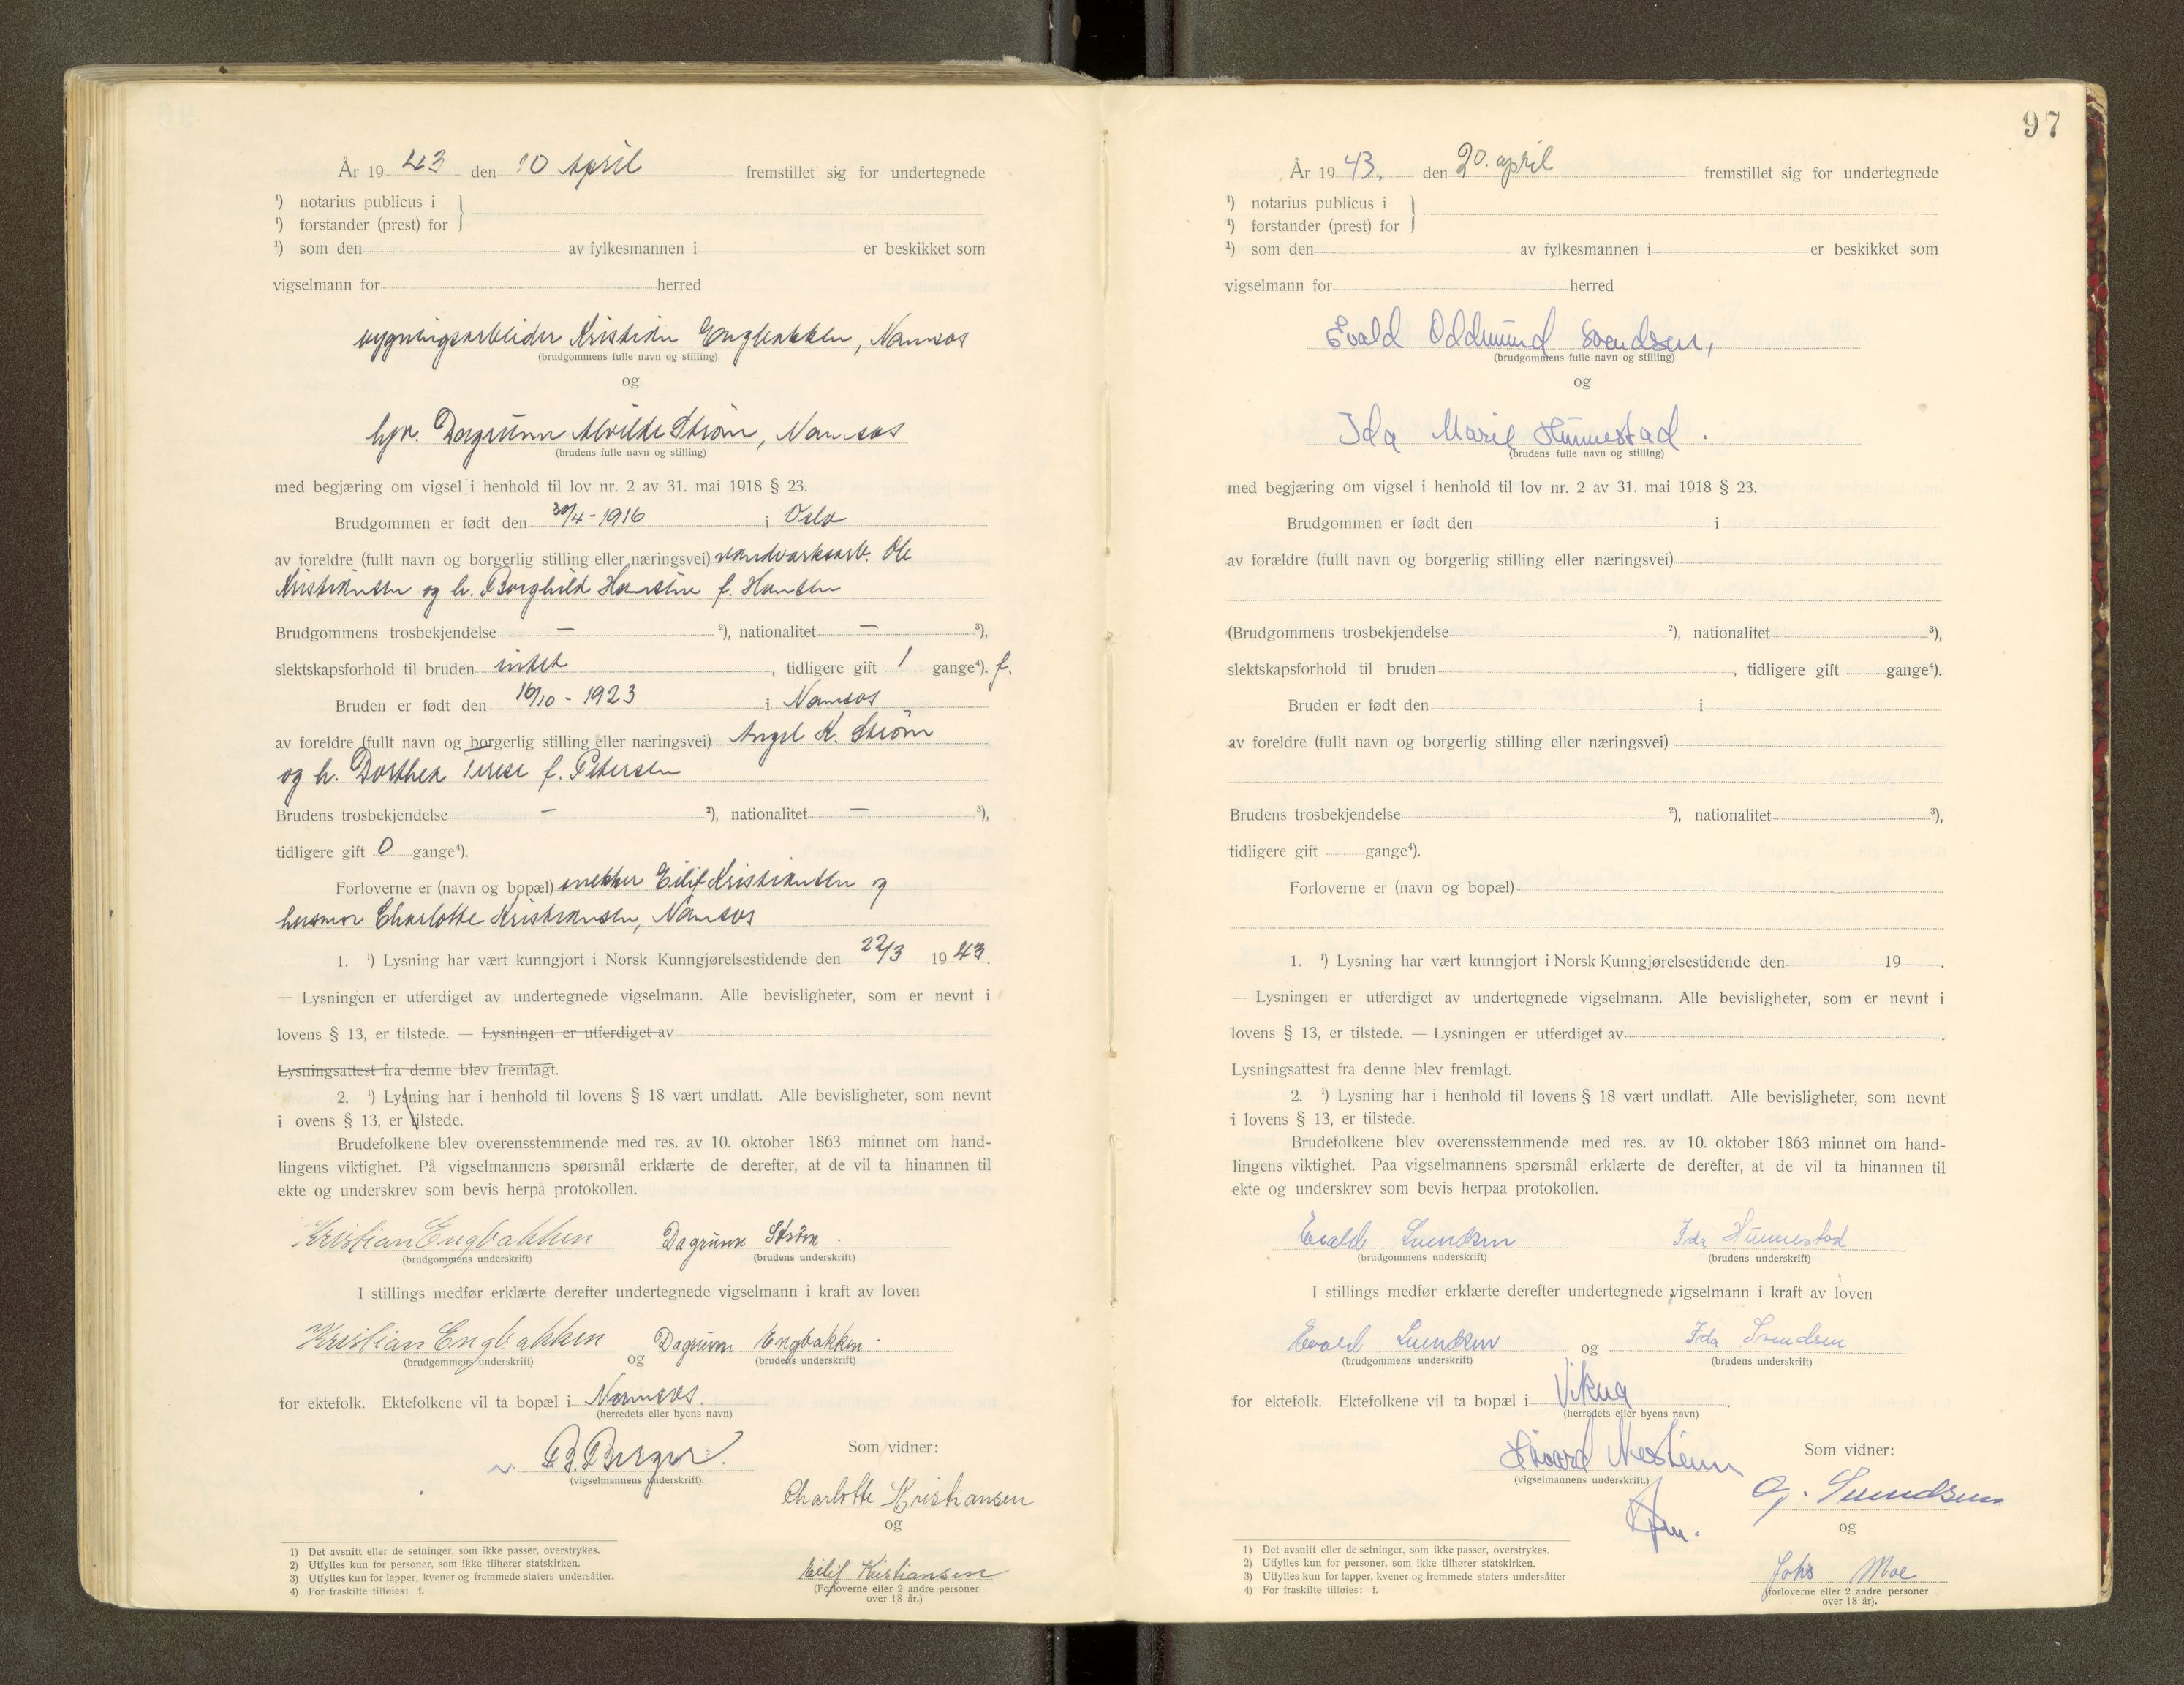 År 19 43 den 10 April fremstillet sig for undertegnede
¹) notarius publicus i
¹) forstander (prest) for
¹) som den av fylkesmannen i er beskikket som
vigselmann for herred
bygningsarbeider Kristian Engbakken, Namsos
(brudgommens fulle navn og stilling)
og
hjv. Dagrunn Alvilde Strøm, Namsos
(brudens fulle navn og stilling)
med begjæring om vigsel i henhold til lov nr. 2 av 31. mai 1918 § 23.
Brudgommen er født den 30/4-1916 i Oslo
av foreldre (fullt navn og borgerlig stilling eller næringsvei) vandverksarb. Ole
Kristiansen og h. Borghild Hansine f. Hansen
Brudgommens trosbekjendelse — ²), nationalitet — ³),
slektskapsforhold til bruden intet, tidligere gift 1 gange⁴). f.
Bruden er født den 16/10 - 1923 i Namsos
av foreldre (fullt navn og borgerlig stilling eller næringsvei) Angel K. Strøm
og h. Dorthea Terese f. Petersen
Brudens trosbekjendelse — ²), nationalitet — ³),
tidligere gift 0 gange⁴).
Forloverne er (navn og bopæl) snekker Eilif Kristiansen og
husmor Charlotte Kristiansen, Namsos
1. ¹) Lysning har vært kunngjort i Norsk Kunngjørelsestidende den 22/3 1943.
— Lysningen er utferdiget av undertegnede vigselmann. Alle bevisligheter, som er nevnt i
lovens § 13, er tilstede. — Lysningen er utferdiget av
Lysningsattest fra denne blev fremlagt.
2. ¹) Lysning har i henhold til lovens § 18 vært undlatt. Alle bevisligheter, som nevnt
i ovens § 13, er tilstede.
Brudefolkene blev overensstemmende med res. av 10. oktober 1863 minnet om hand-
lingens viktighet. På vigselmannens spørsmål erklærte de derefter, at de vil ta hinannen til
ekte og underskrev som bevis herpå protokollen.
Kristian Engbakken Dagrunn Strøm.
(brudgommens underskrift) (brudens underskrift)
I stillings medfør erklærte derefter undertegnede vigselmann i kraft av loven
Kristian Engbakken og Dagrunn Engbakken.
(brudgommens underskrift) (brudens underskrift)
for ektefolk. Ektefolkene vil ta bopæl i Namsos.
(herredets eller byens navn)
B. Berger.
(vigselmannens underskrift).
Som vidner:
Charlotte Kristiansen
og
Eilif Kristiansen
(Forloverne eller 2 andre personer
over 18 år.)
1) Det avsnitt eller de setninger, som ikke passer, overstrykes.
2) Utfylles kun for personer, som ikke tilhører statskirken.
3) Utfylles kun for lapper, kvener og fremmede staters undersåtter.
4) For fraskilte tilføies: f.
97
År 19 43. den 20. april fremstillet sig for undertegnede
¹) notarius publicus i
¹) forstander (prest) for
¹) som den av fylkesmannen i er beskikket som
vigselmann for herred
Evald Oddmund Svendsen,
(brudgommens fulle navn og stilling)
og
Ida Marie Hunnestad.
(brudens fulle navn og stilling)
med begjæring om vigsel i henhold til lov nr. 2 av 31. mai 1918 § 23.
Brudgommen er født den i
av forældre (fullt navn og borgerlig stilling eller næringsvei)
(Brudgommens trosbekjendelse ²), nationalitet ³),
slektskapsforhold til bruden, tidligere gift gange⁴).
Bruden er født den i
av foreldre (fullt navn og borgerlig stilling eller næringsvei)
Brudens trosbekjendelse ²), nationalitet ³),
tidligere gift gange⁴).
Forloverne er (navn og bopæl)
1. ¹) Lysning har vært kunngjort i Norsk Kunngjørelsestidende den 19.
— Lysningen er utferdiget av undertegnede vigselmann. Alle bevisligheter, som er nevnt i
lovens § 13, er tilstede. — Lysningen er utferdiget av.
Lysningsattest fra denne blev fremlagt.
2. ¹) Lysning har i henhold til lovens § 18 vært undlatt. Alle bevisligheter, som nevnt
i lovens § 13, er tilstede.
Brudefolkene blev overensstemmende med res. av 10. oktober 1863 minnet om hand-
lingens viktighet. Paa vigselmannens spørsmål erklærte de derefter, at de vil ta hinannen til
ekte og underskrev som bevis herpaa protokollen.
Evald Svendsen Ida Hunnestad
(brudgommens underskrift) (brudens underskrift)
I stillings medfør erklærte derefter undertegnede vigselmann i kraft av loven
Evald Svendsen og Ida Svendsen
(brudgommens underskrift) (brudens underskrift)
for ektefolk. Ektefolkene vil ta bopæl i Vikna.
(herredets eller byens navn)
(vigselmannens underskrift.)
Som vidner:
O. Svendsen
og
Johs Moe
(forloverne eller 2 andre personer
over 18 år).
1) Det avsnitt eller de setninger, som ikke passer, overstrykes.
2) Utfylles kun for personer, som ikke tilhører statskirken.
3) Utfylles kun for lapper, kvener og fremmede staters undersåtter
4) For fraskilte tilføies: f.